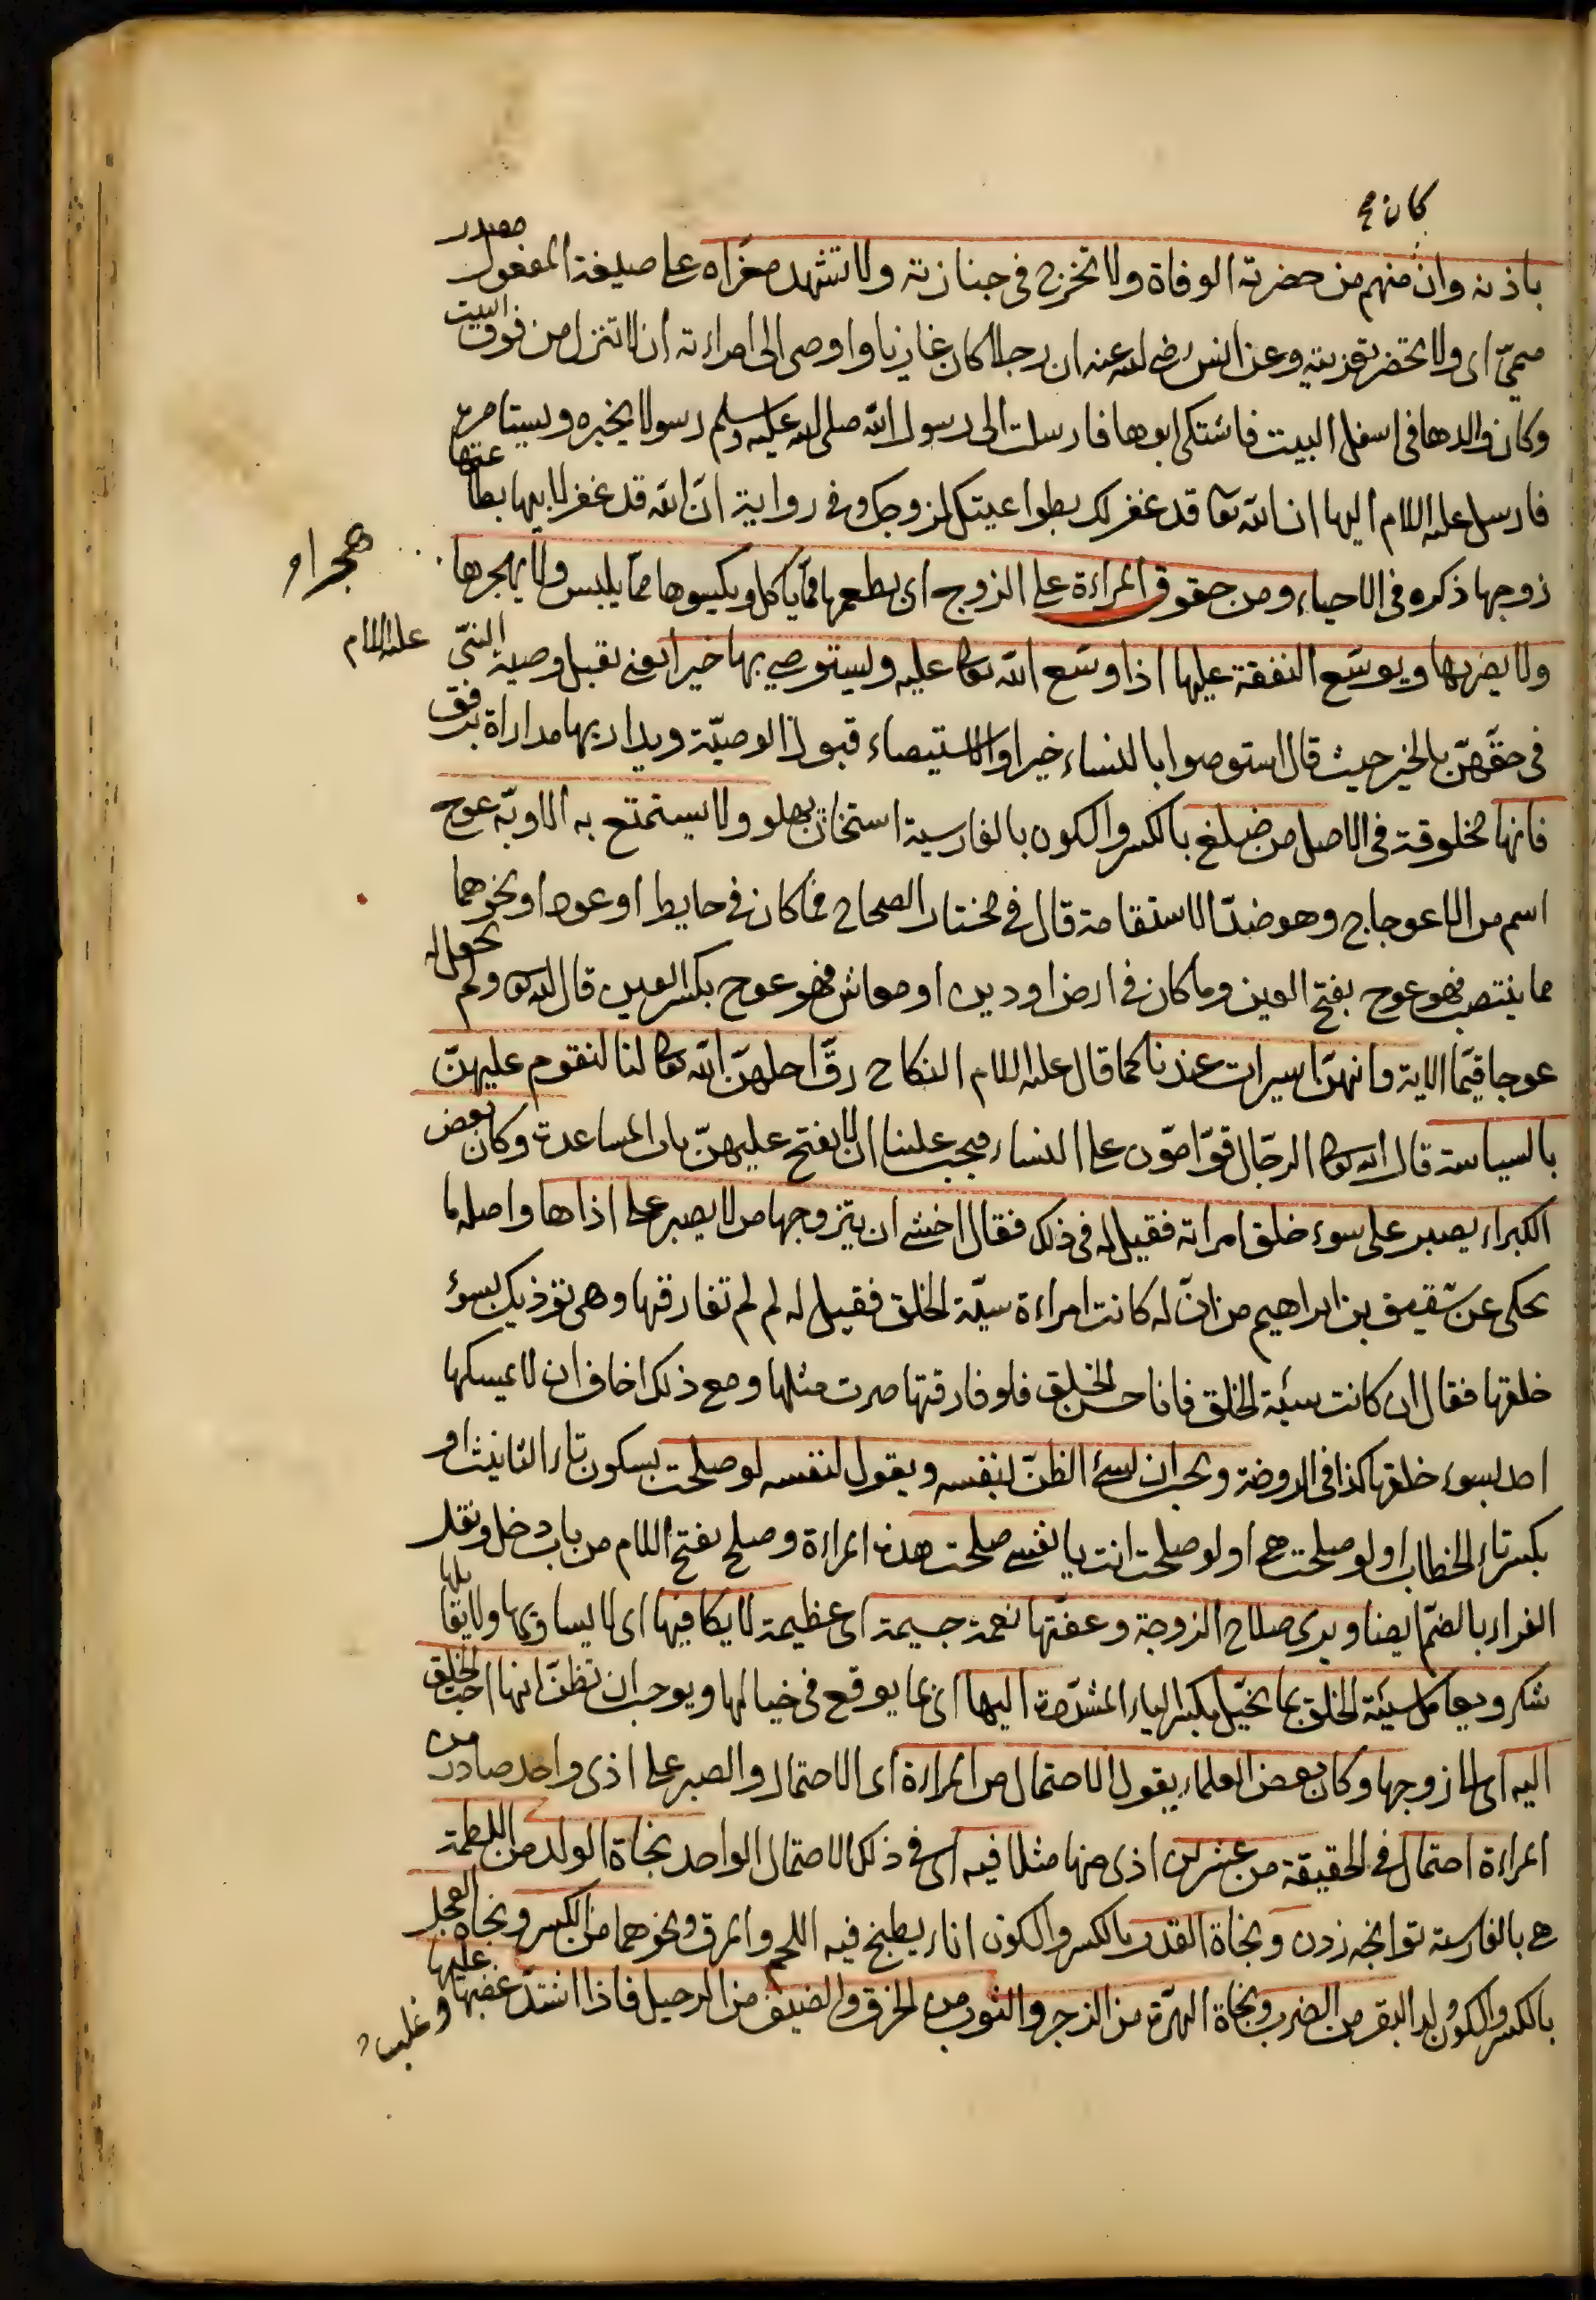 كان
باذنه وان منهم من حضرته الوفاة ولا تخرج في جنازته ولا تشهد معزاه على صيغة المفعول مصدر
ميمي اى ولا تحضر تعزيته وعن انس رضي الله عنه ان رجلا كان غازيا واوصى الى امراءته ان لا تنزل من فوق البيت
وكان والدها في اسفل البيت فاشتكى ابوها فارسلت الى رسول الله صلى الله عليه وسلم رسولا يخبره ويستامره
فارسل عليه السلام اليها ان الله تعا قد غفر لك بطواعيتك لزوجك وفي رواية ان الله قد غفر لابيها بطاعتها
زوجها ذكره في الاحياء ومن حقوق المراءة على الزوج ان يطعمها مما ياكل ويكسوها مما يلبس ولا يهجرها
هجرا و
ولا يضربها ويوسع النفقة عليها اذا وسع الله تعالى عليه وليستوصي بها خيرا يعني يقبل وصية النبي عليه السلام
في حقهن بالخير حيث قال استوصوا بالنساء خيرا والاستيصاء قبول الوصية ويداريها مداراة برفق
فانها مخلوقة في الاصل من ضلع بالكسر والسكون بالفارسية استخوان پهلو ولا يستمتع به الا وبه عوج
اسم من الاعوجاج وهو ضد الاستقامة قال في مختار الصحاح فما كان في حايط او عود او نحوهما
مما ينتصب فهو عوج بفتح العين وما كان في ارض او دين او معاش فهو عوج بكسر العين قال الله تعا ولم يجعل له
عوجا قيما الاية وانهن اسيرات عندنا كما قال عليه السلام النكاح رق احلهن الله تعالى لنا لنقوم عليهن
بالسياسة قال الله تعالى الرجال قوامون على النساء فيجب علينا ان لا يفتح عليهن باب المساعدة وكان بعض
الكبراء يصبر على سوء خلق امراته فقيل له في ذلك فقال اخشى ان يتزوجها من لا يصبر على اذاها واصله ما
يحكى عن شقيق بن ابراهيم من ان له كانت امراءة سيئة الخلق فقيل له لم لم تفارقها وهي تؤذيك بسوء
خلقها فقال ان كانت سيئة الخلق فانا حسن الخلق فلو فارقتها صرت مثلها ومع ذلك اخاف ان لا يمسكها
احد بسوء خلقها كذا في الروضة ويجب ان يسئ الظن بنفسه ويقول لنفسه لو صلحت بسكون تاء التانيث او
بكسر تاء الخطاب او لو صلحت هي او لو صلحت انت يا نفسي صلحت هذه المراءة وصلح بفتح اللام من باب دخل ونقل
الفراء بالضم ايضا ويرى صلاح الزوجة وعفتها نعمة جسيمة اى عظيمة لا يكافيها اى لا يساويها ولا يقابلها
شكر ويعامل سيئة الخلق بما يخيل بكسر الياء المشددة اليها اى بما يوقع في خيالها ويوجب ان تظن انها احب الخلق
اليه اى الى زوجها وكان بعض العلماء يقول الاحتمال من المراءة اى الاحتمال والصبر على اذى واحد صادر من
المراءة احتمال في الحقيقة من عشرين اذى منها مثلا فيه اى في ذلك الاحتمال الواحد نجاة الولد من اللطمة
هي بالفارسية تپانچه زدن ونجاة القدر بالكسر والسكون اناء يطبخ فيه اللحم والمرق ونحوهما من الكسر ونجاة العجل
بالكسر والسكون ولد البقر من الضرب ونجاة الهرة من الزجر والثوب من الخرق والضيف من الرحيل فاذا اشتد غضبها عليها
و غلبت